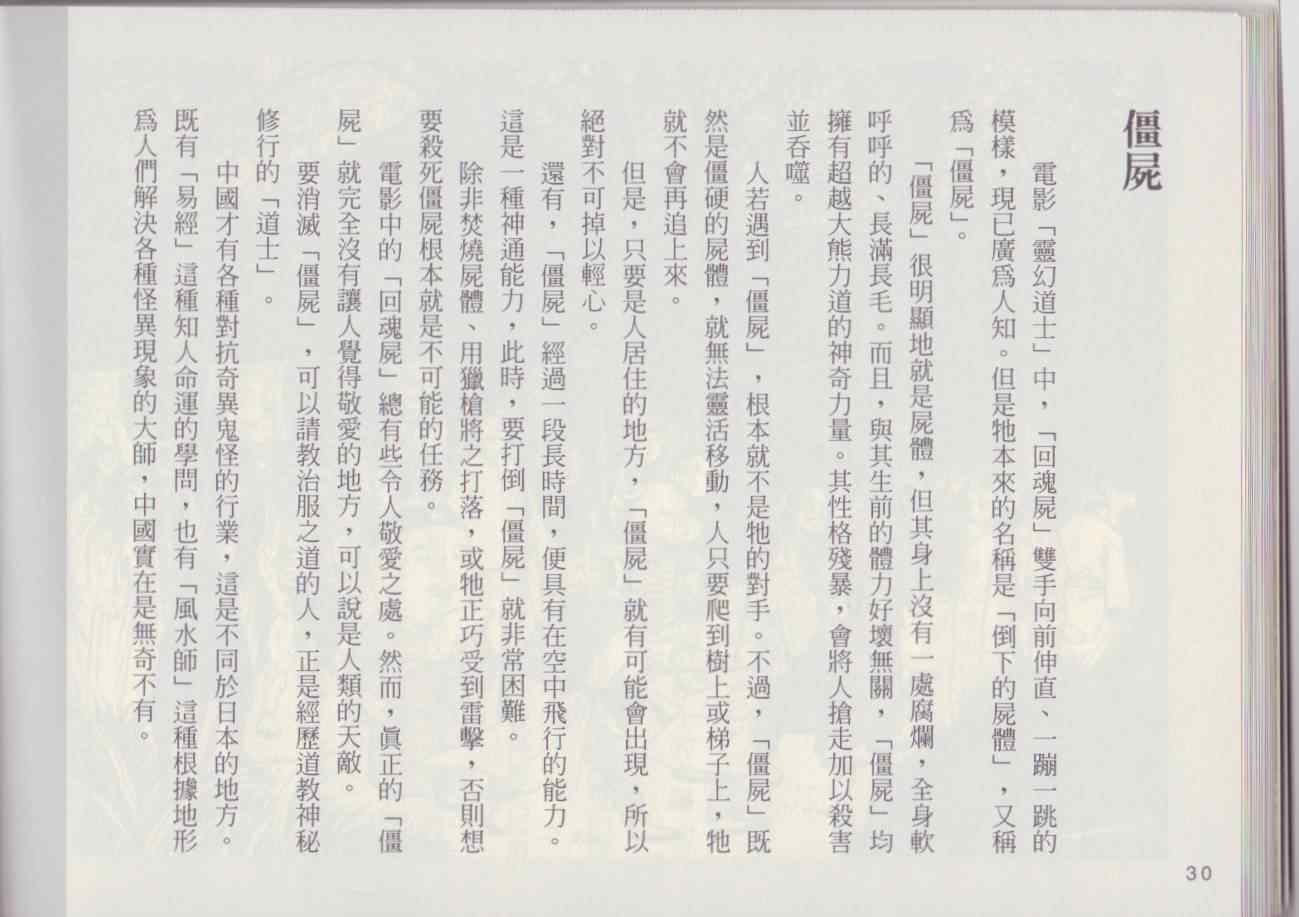 僵屍
電影「靈幻道士」中，「回魂屍」雙手向前伸直、一蹦一跳的
模樣，現已廣爲人知。但是牠本來的名稱是「倒下的屍體」，又稱
爲「僵屍」。
「僵屍」很明顯地就是屍體，但其身上沒有一處腐爛，全身軟
呼呼的、長滿長毛。而且，與其生前的體力好壞無關，「僵屍」均
擁有超越大熊力道的神奇力量。其性格殘暴，會將人搶走加以殺害
並吞噬。
人若遇到「僵屍」，根本就不是牠的對手。不過，「僵屍」既
然是僵硬的屍體，就無法靈活移動，人只要爬到樹上或梯子上，牠
就不會再追上來。
但是，只要是人居住的地方，「僵屍」就有可能會出現，所以
絕對不可掉以輕心。
還有，「僵屍」經過一段長時間，便具有在空中飛行的能力。
這是一種神通能力，此時，要打倒「僵屍」就非常困難。
除非焚燒屍體、用獵槍將之打落，或牠正巧受到雷擊，否則想
要殺死僵屍根本就是不可能的任務。
電影中的「回魂屍」總有些令人敬愛之處。然而，眞正的「僵
屍」就完全沒有讓人覺得敬愛的地方，可以說是人類的天敵。
要消滅「僵屍」，可以請教治服之道的人，正是經歷道教神秘
修行的「道士」。
中國才有各種對抗奇異鬼怪的行業，這是不同於日本的地方。
既有「易經」這種知人命運的學問，也有「風水師」這種根據地形
爲人們解決各種怪異現象的大師，中國實在是無奇不有。
30